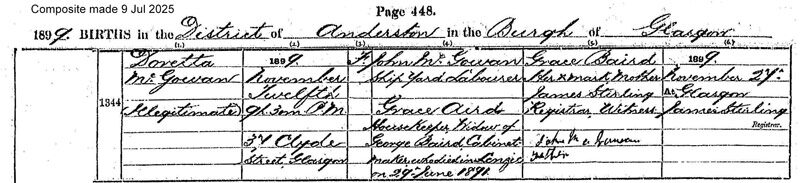 Composite made 9 Jul 2025
Page 448.
1899. BIRTHS in the District of Anderston in the Burgh of Glasgow
(1.) (2.) (3.) (4.) (5.) (6.)
1344
Doretta
McGowan
Illegitimate
1899.
November
Twelfth
9h. 30m. P.M.
37 Clyde
Street, Glasgow
F.
John McGowan
Ship Yard Labourer
Grace Aird
Housekeeper, Widow of
George Baird Cabinet-
maker, who died in Lenzie
on 29th June 1891.
Grace Baird
Her x mark, Mother
James Stirling
Registrar, Witness.
John McGowan
father
1899.
November 27th
At Glasgow
James Stirling
Registrar.